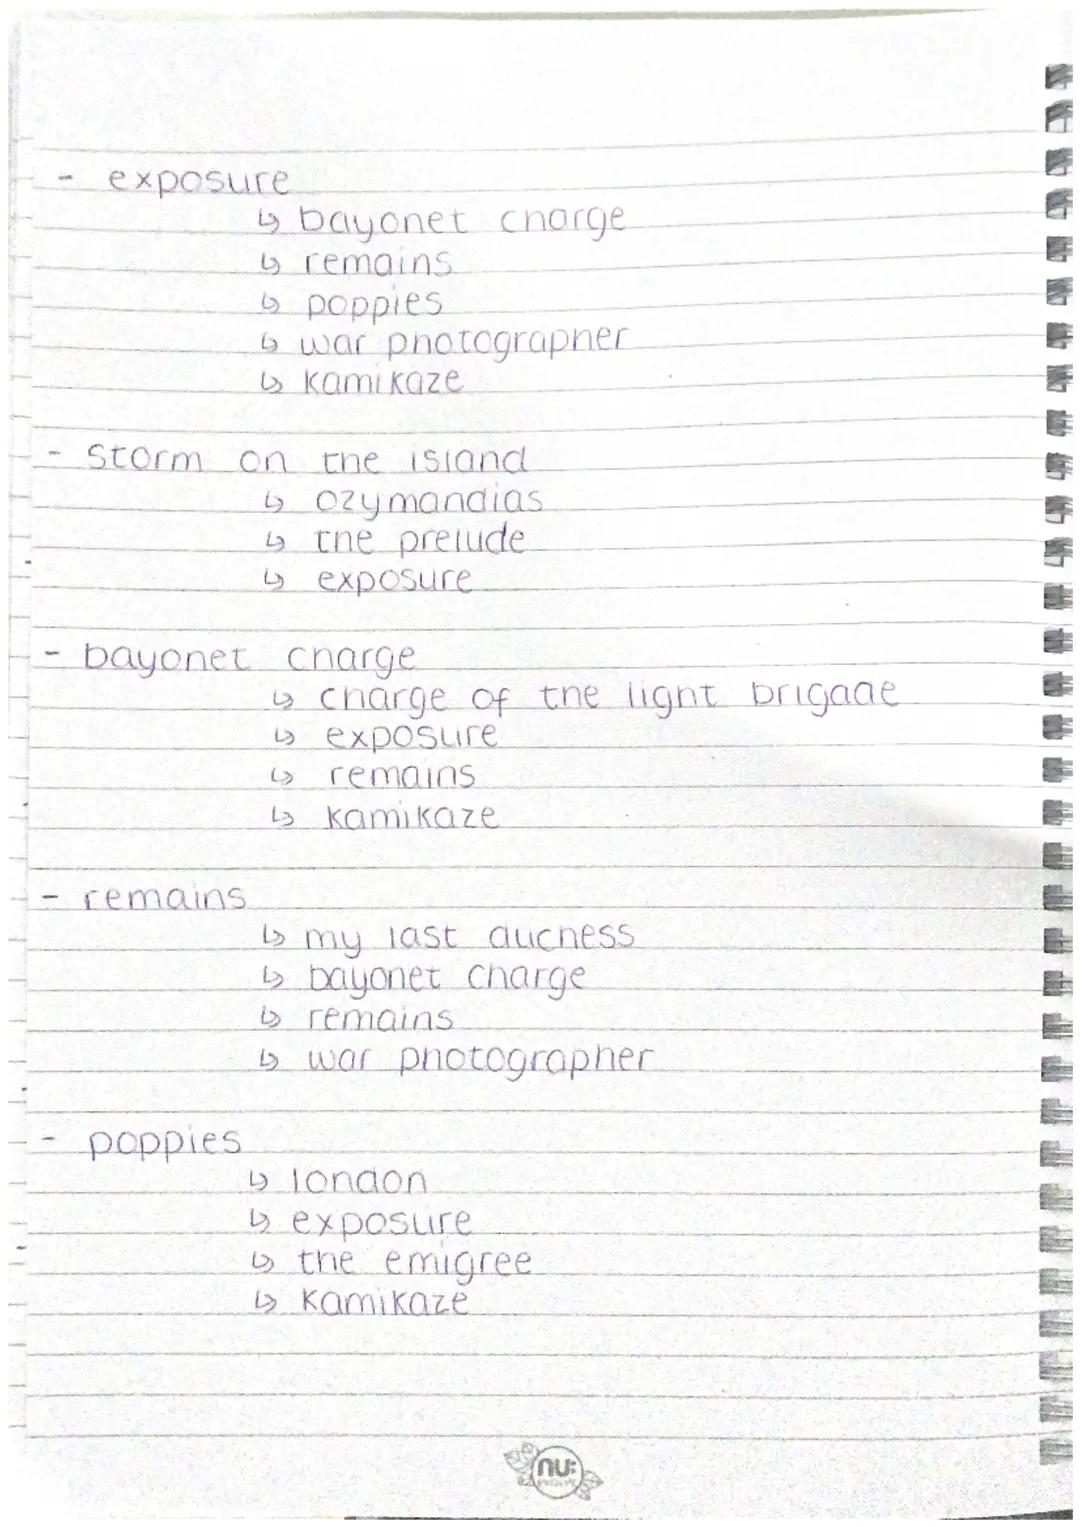 - exposure
↳ bayonet charge
↳ remains
↳ poppies
↳ war photographer
↳ kamikaze
- storm on the island
↳ ozymandias
↳ the prelude
↳ exposure
- bayonet charge
↳ charge of the light brigade
↳ exposure
↳ remains
↳ kamikaze
- remains
↳ my last duchess
↳ bayonet charge
↳ remains
↳ war photographer
- poppies
↳ london
↳ exposure
↳ the emigree
↳ kamikaze
nu: